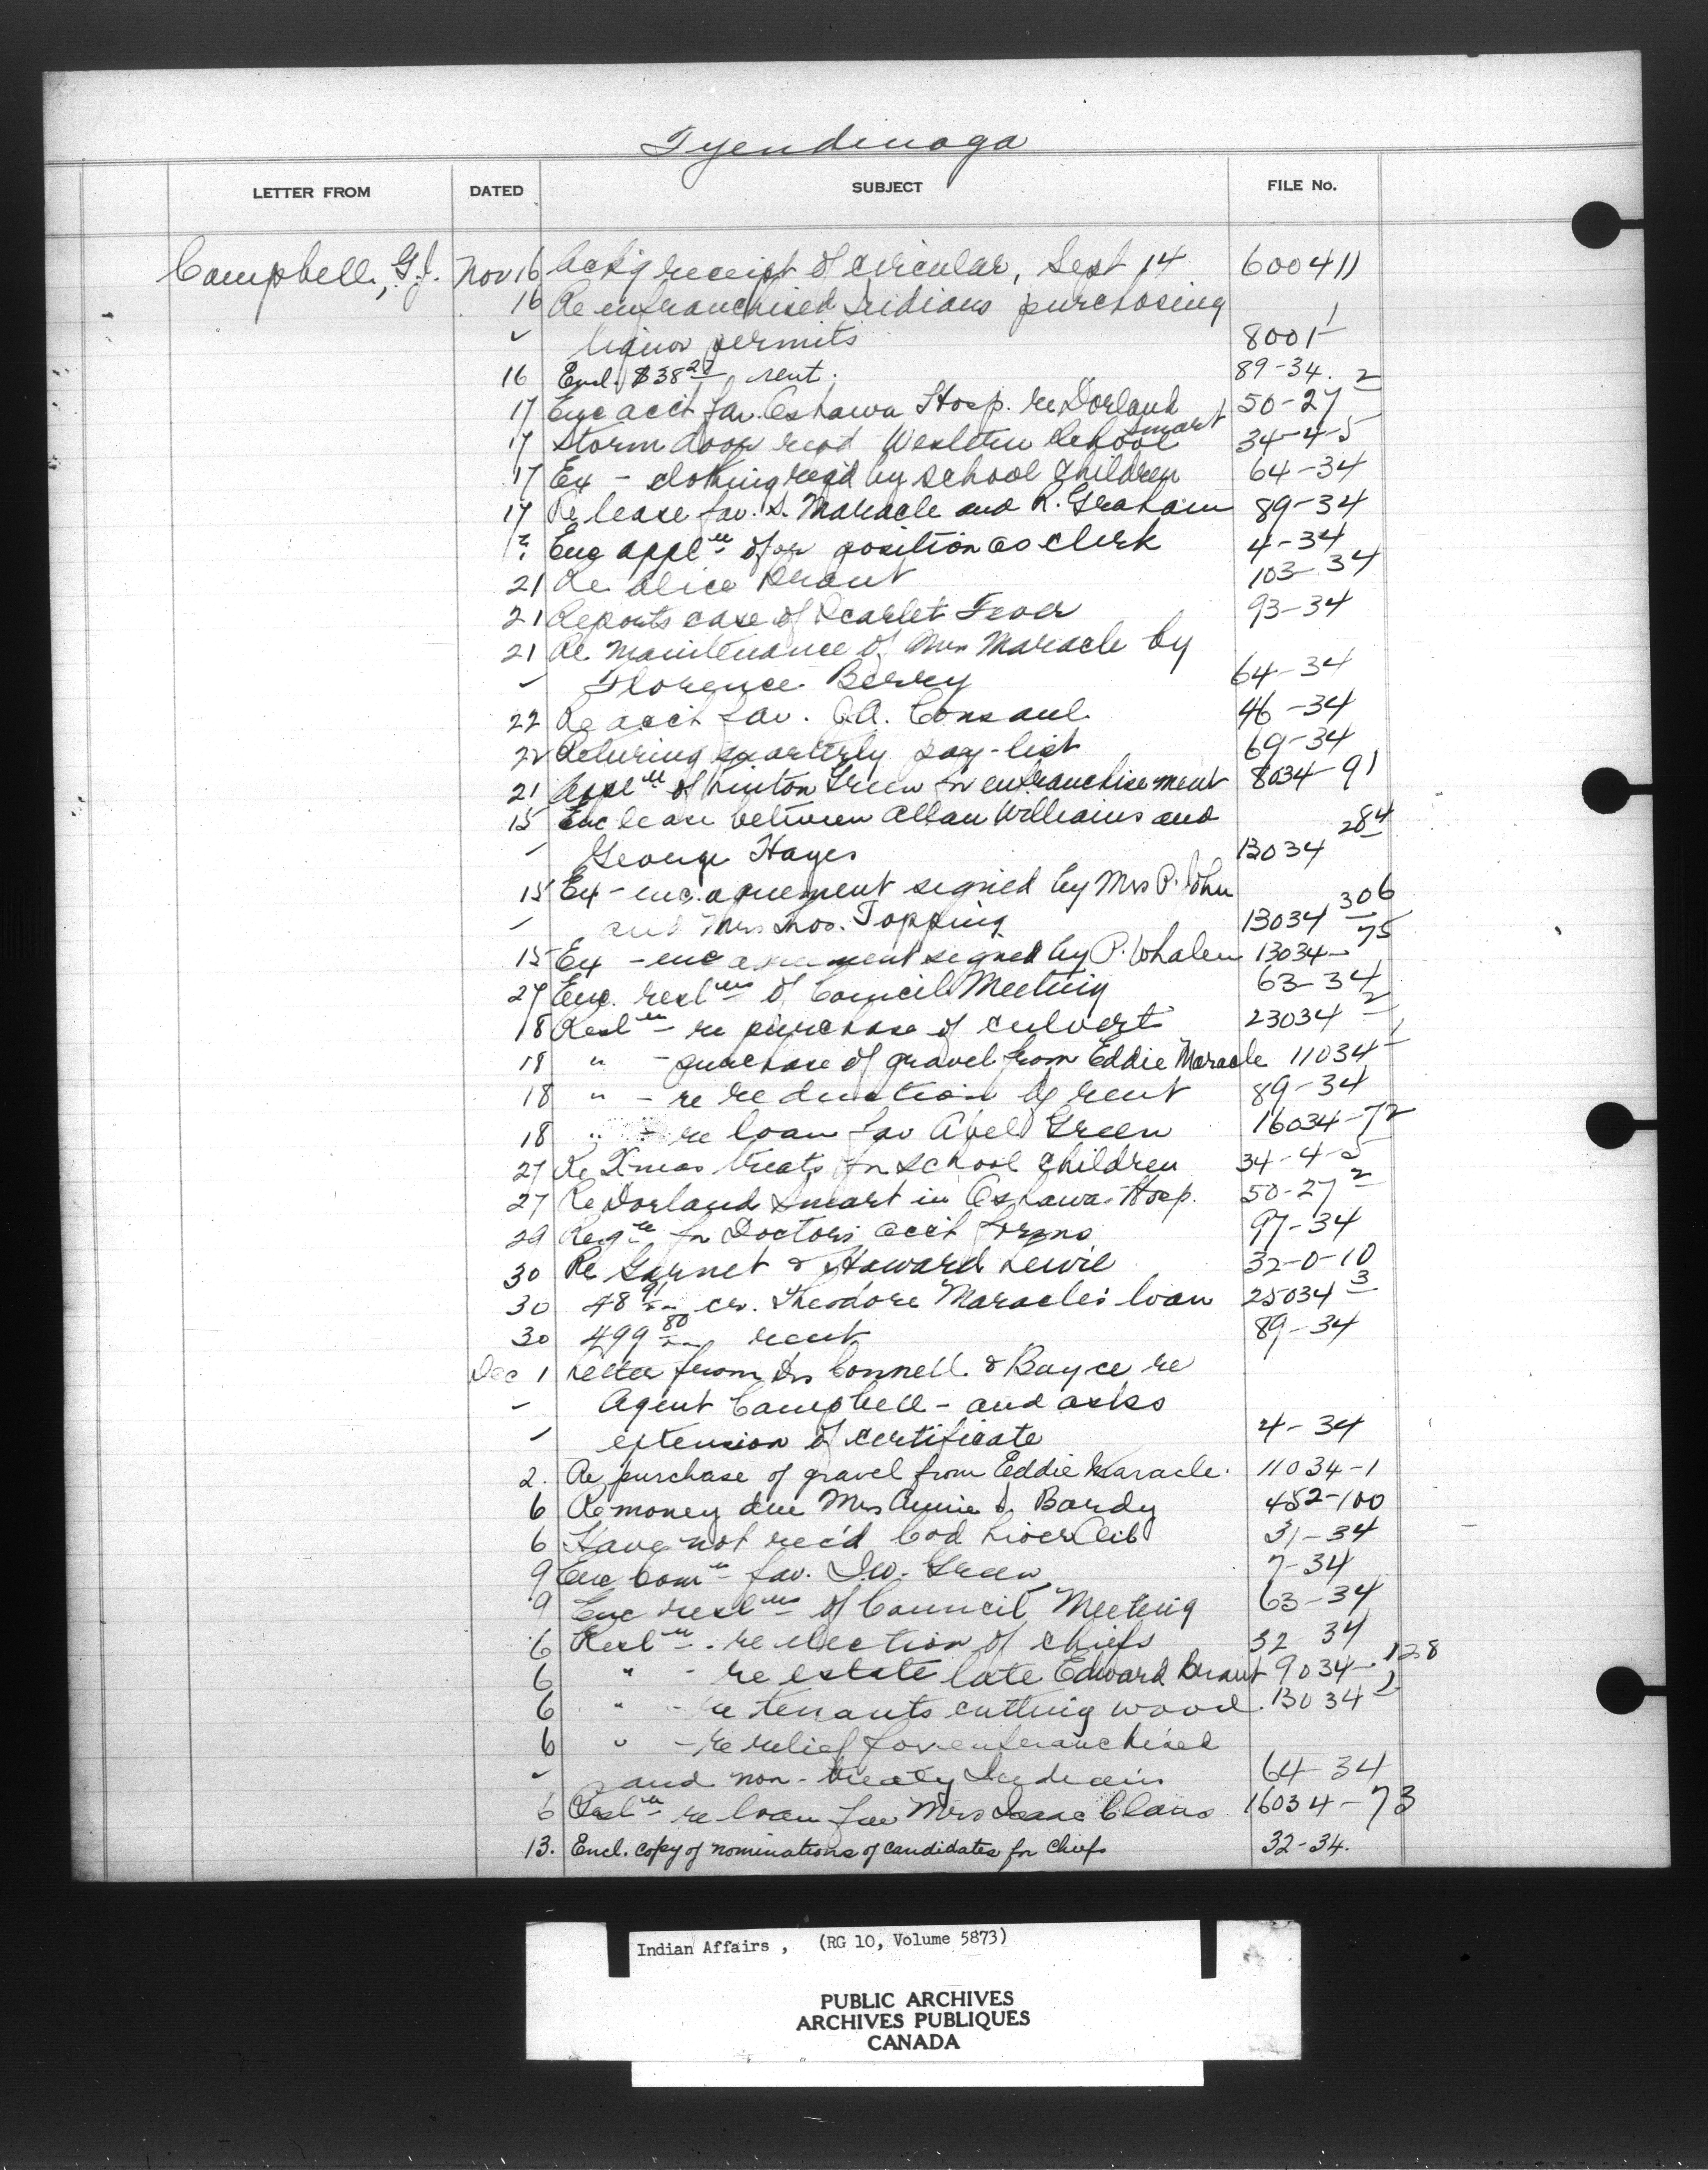 Tyendinaga
LETTER FROM DATED SUBJECT FILE No.
Campbell, G.J. Nov 16 Ackg receipt of circular, Sept 14 600411
16 Re enfranchised Indians purchasing
" liquor permits 8001-1
16 Encl. $38 rent. 89-34.
17 Enc acct fav. Oshawa Hosp. re Dorland Smart 50-27-2
17 Storm door reqd Western School 34-4-5
17 Ex - clothing reqd by school children 64-34
17 Re lease fav. S. Maracle and R. Graham 89-34
Enc appl'n for position as clerk 4-34
21 Re Alice Brant 103-34
21 Reports case of Scarlet Fever 93-34
21 Re maintenance of Mrs Maracle by
" Florence Berry 64-34
22 Re acct fav. Consaul 46-34
22 Returing quarterly pay-list 69-34
21 Appl'n of Linton Green for enfranchisement 8034-91
15 Enc lease between Allan Williams and
" George Hayes 13034-284
15 Ex - enc. agreement signed by Mrs P. John
" and Mrs Thos. Topping 13034-306
15 Ex - enc agreement signed by P. Whalen 13034-75
27 Enc. resl'ns of Council Meeting 63-34
18 Resl'n - re purchase of culvert 23034-2
18 " - purchase of gravel from Eddie Maracle 11034-1
18 " - re reduction of rent 89-34
18 " - re loan fav Abel Green 16034-72
27 Re Xmas treats for school children 34-4-5
27 Re Dorland Smart in Oshawa Hosp. 50-27-2
29 Req'n for Doctors acct forms 97-34
30 Re Garnet & Howard Lewis 32-0-10
30 48 91 cr. Theodore Maracle's loan 25034-3
30 499 80 rent 89-34
Dec 1 Letter from Drs Connell & Boyce re
" Agent Campbell - and asks
" extension of certificate 4-34
2. Re purchase of gravel from Eddie Maracle. 11034-1
6 Re money due Mrs Annie Bardy 452-100
6 Have not rec'd Cod Liver Oil 31-34
9 Enc Com'n fav. Green 7-34
9 Enc resl'ns of Council Meeting 63-34
6 Resl'n - re election of chiefs 32 34
6 " - re estate late Edward Brant 9034-128
6 " - re tenants cutting wood. 13034-1
6 " - re relief for enfranchised
" and non-treaty Indians 64-34
6 Resl'n re loan fav Mrs Isaac Claus 16034-73
13. Encl. copy of nominations of candidates for Chiefs 32-34.
Indian Affairs , (RG 10, Volume 5873)
PUBLIC ARCHIVES
ARCHIVES PUBLIQUES
CANADA